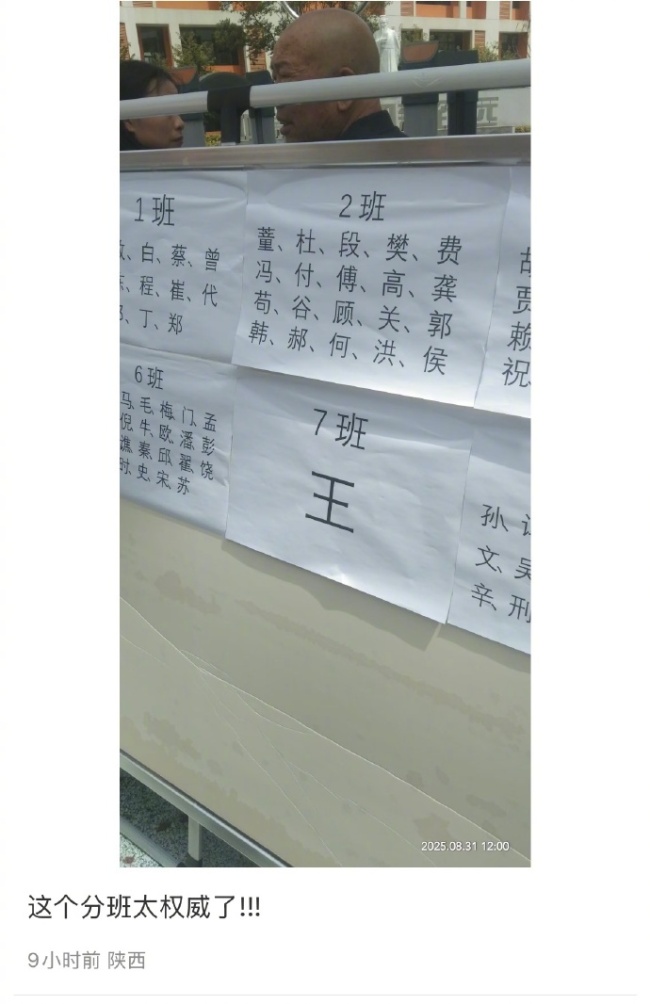 1班
、白、蔡、曾
、程、崔、代
、丁、郑
2班
董、杜、段、樊、费
冯、付、傅、高、龚
苟、谷、顾、关、郭
韩、郝、何、洪、侯
胡
贾
赖
祝
6班
马、毛、梅、门、孟
倪、牛、欧、潘、彭
谯、秦、邱、翟、饶
时、史、宋、苏
7班
王
孙、
文、吴
辛、刑
2025.08.31 12:00
这个分班太权威了!!!
9小时前 陕西